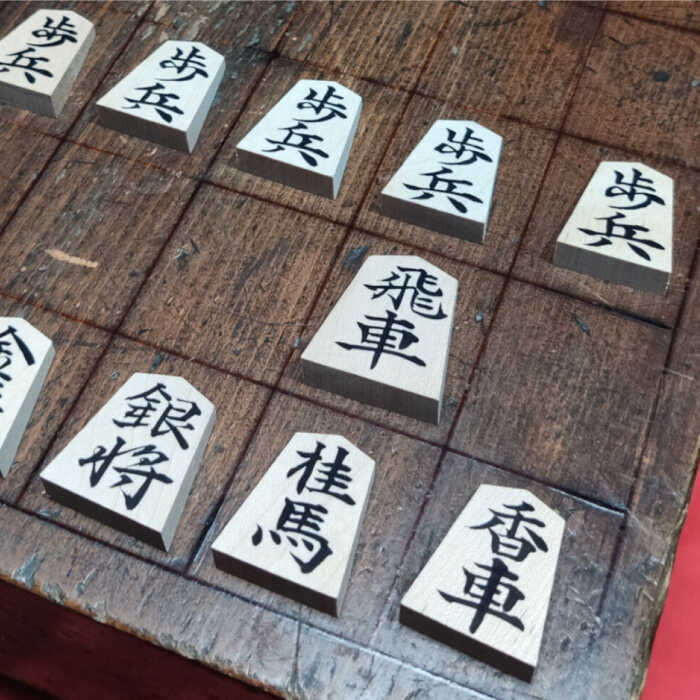 歩兵
歩兵
歩兵
歩兵
歩兵
飛車
銀将
桂馬
香車